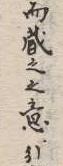 而蔵之之意引